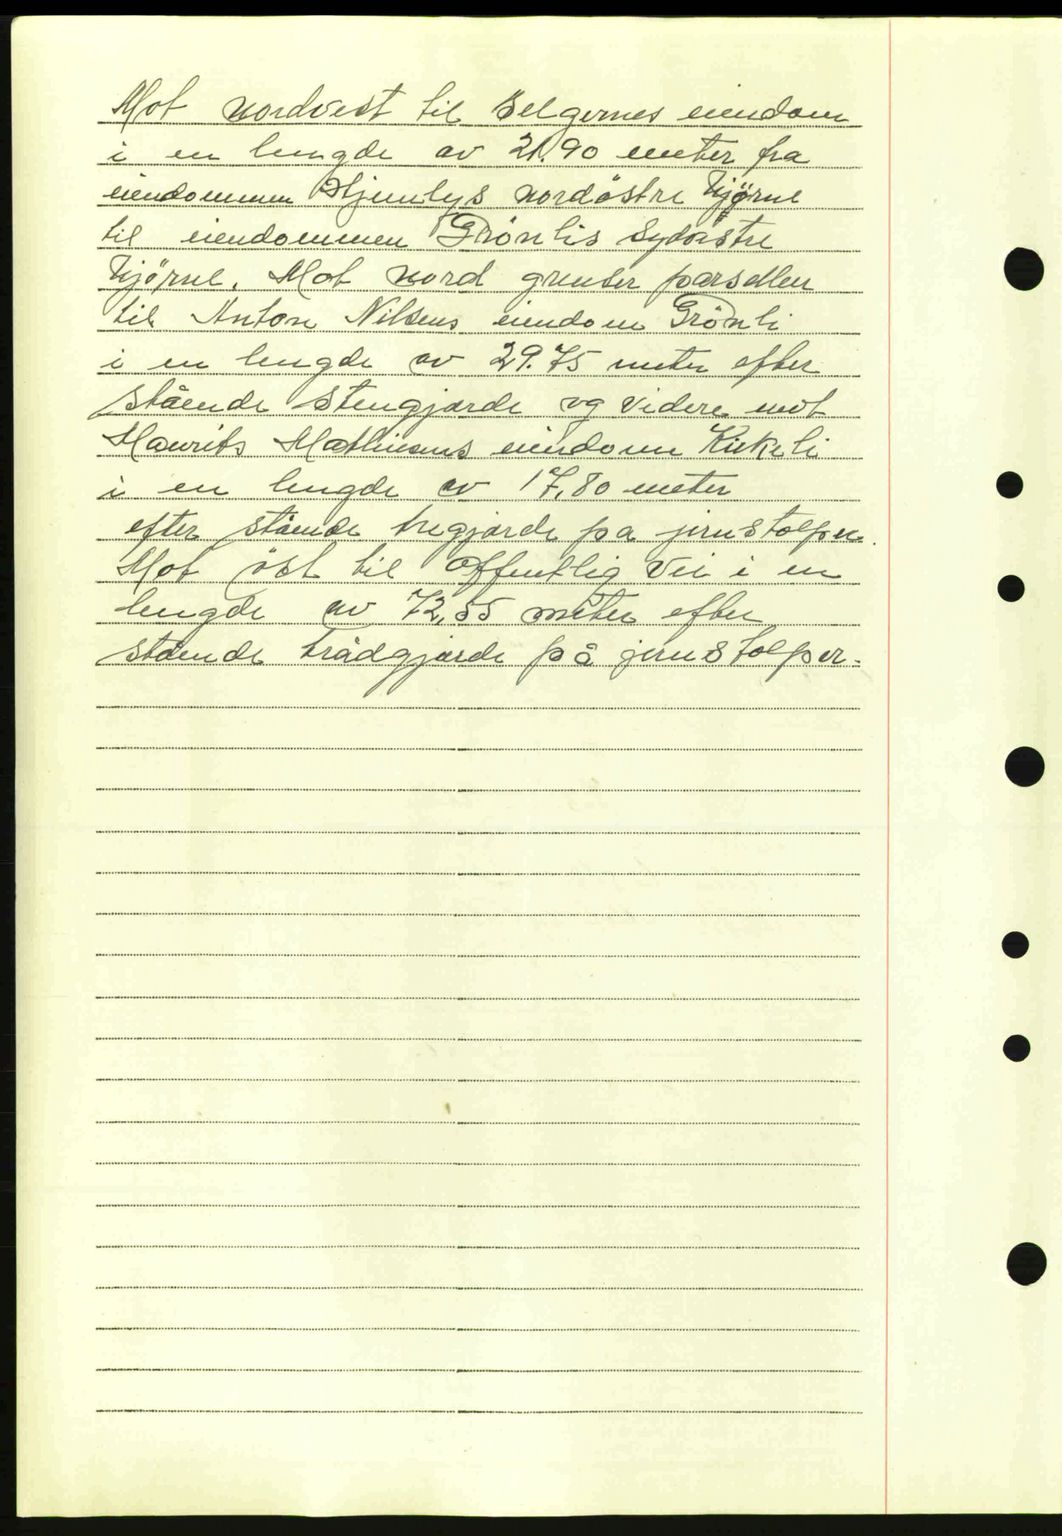 Mot nordvest til Selgernes eiendom
i en lengde av 21.90 meter fra
eiendommen Hjemlys nordöstre hjörne
til eiendommen Grönlis sydöstre
hjörne. Mot nord grenser parsellen
til Anton Nilsens eiendom Grönli
i en lengde av 29.75 meter efter
stående stengjærde og videre mot
Maurits Mathisens eiendom Kirkeli
i en lengde av 17,80 meter
efter stående tregjærde på jernstolper.
Mot öst til offentlig vei i en
lengde av 72,55 meter efter
stående trådgjærde på jernstolper.